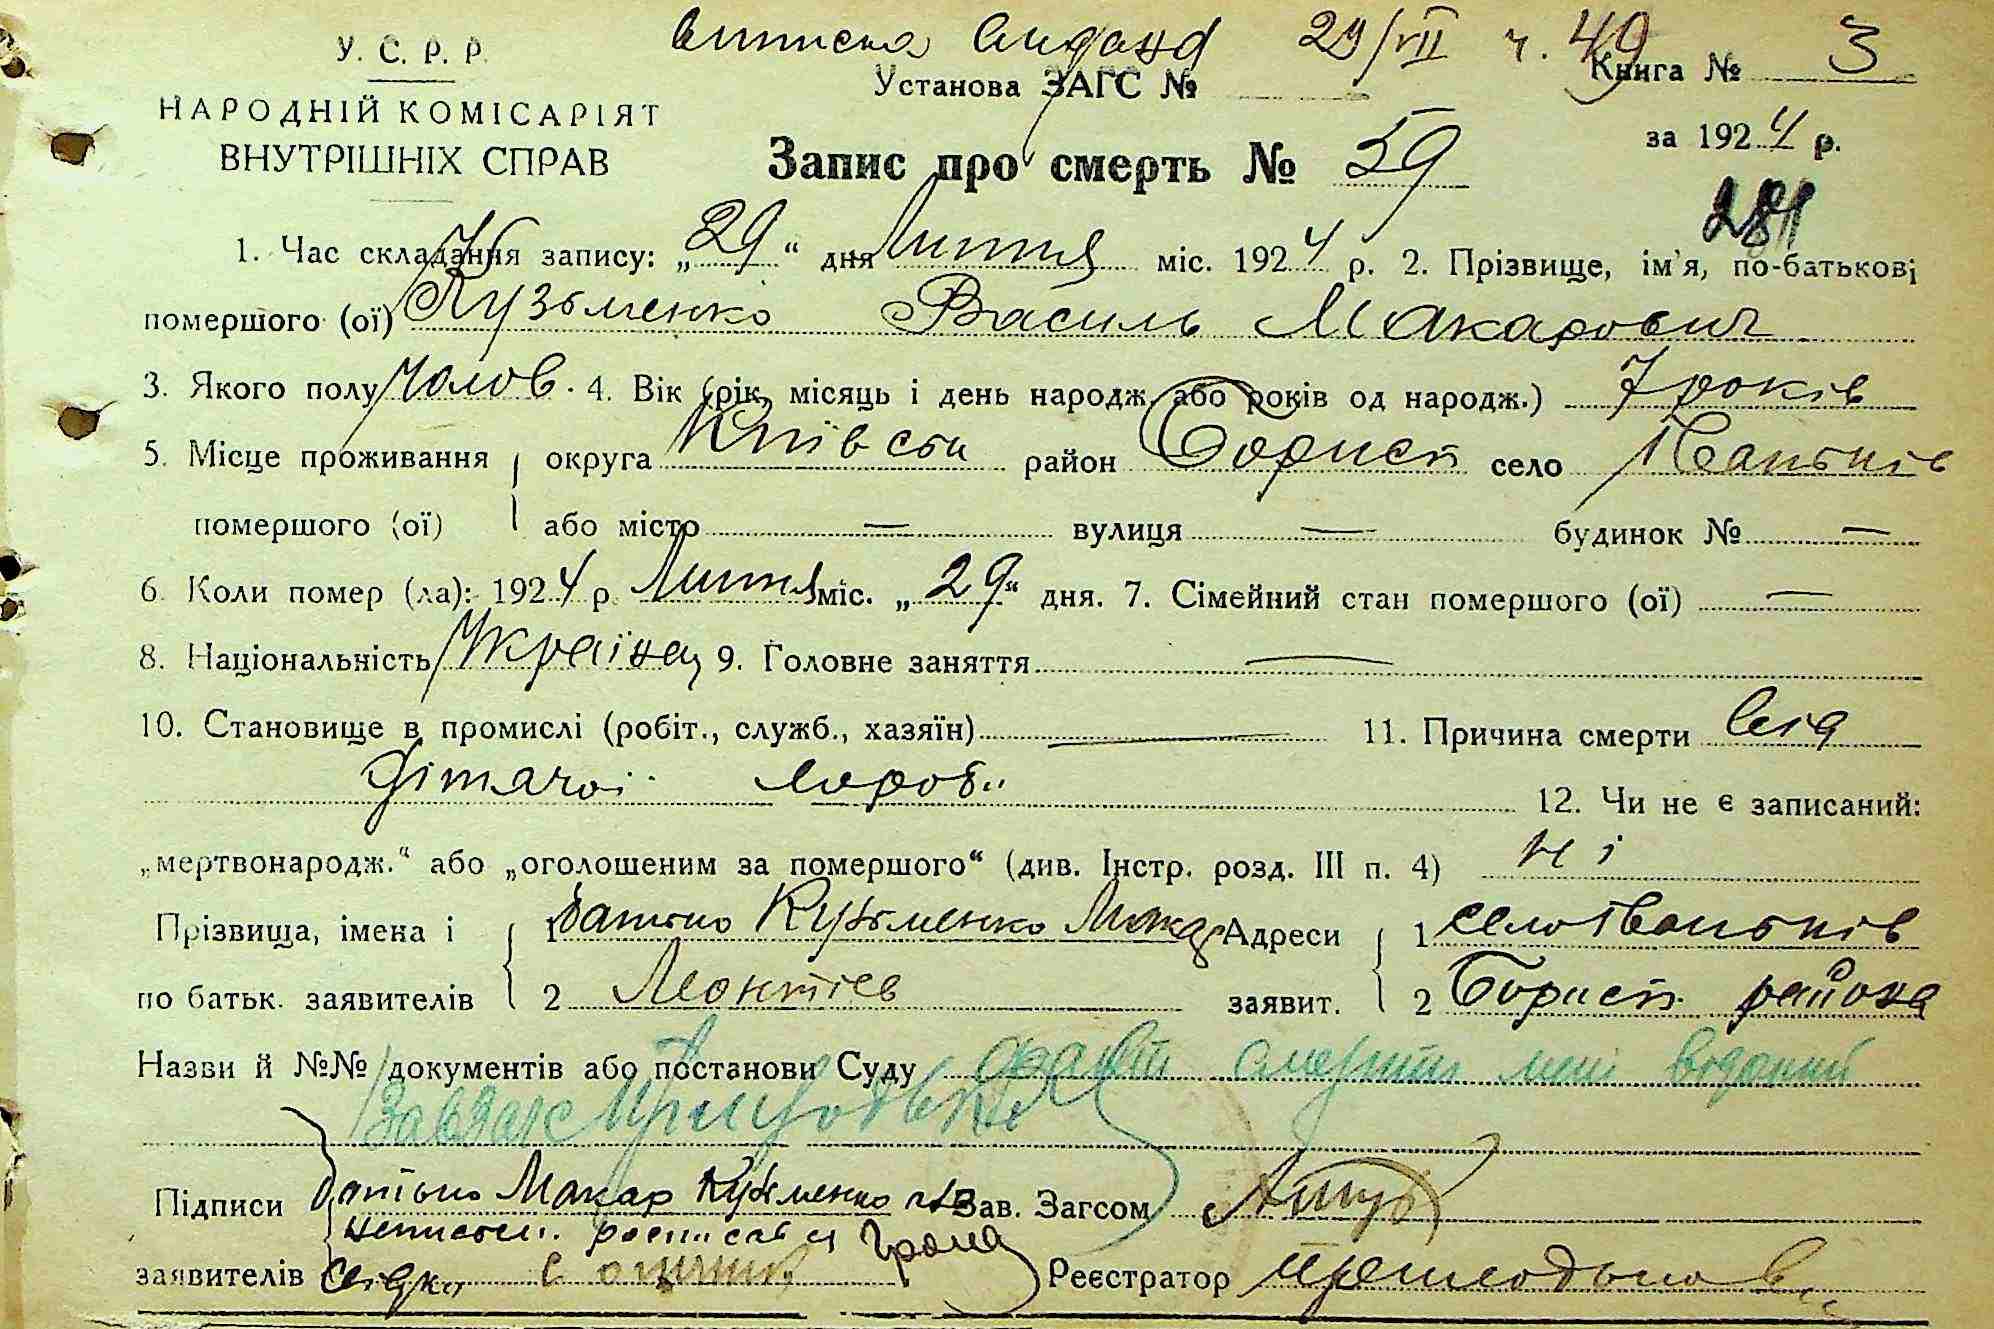 виписка видана 29/VII ч. 49
У. С. Р. Р.
Установа ЗАГС №
Книга № 3
НАРОДНІЙ КОМІСАРІЯТ
ВНУТРІШНІХ СПРАВ
за 1924 р.
Запис про смерть № 59
281
1. Час складання запису: „29“ дня Липня міс. 1924 р. 2. Прізвище, ім'я, по-батькові
помершого (ої) Кузьменко Василь Макарович
3. Якого полу чолов. 4. Вік (рік, місяць і день народж. або років од народж.) 7 років
5. Місце проживання округа Київськ район Борисп село Іваньків
помершого (ої) або місто — вулиця — будинок № —
6. Коли помер (ла): 1924 р. Липня міс. „29“ дня. 7. Сімейний стан помершого (ої) —
8. Національність Українец 9. Головне заняття —
10. Становище в промислі (робіт., служб., хазяїн) — 11. Причина смерти від
дітячої хороби
12. Чи не є записаний:
„мертвонародж.“ або „оголошеним за помершого“ (див. Інстр. розд. III п. 4) ні
Прізвища, імена і 1 батько Кузьменко Макар Адреси 1 село Іваньків
по батьк. заявителів 2 Леонтіев заявит. 2 Борисп. района
Назви й №№ документів або постанови Суду факт смерти мені відомий
Підписи батько Макар Кузьменко Зав. Загсом
неписьм. росписався
заявителів свідки Реєстратор